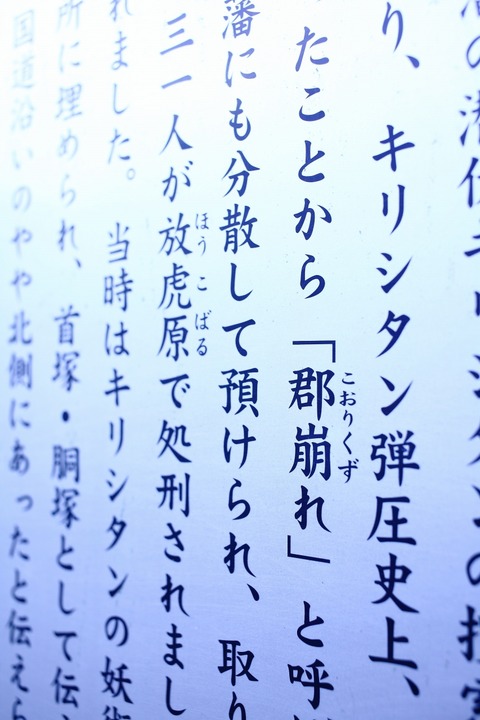 の潜伏キリシタンの
り、キリシタン弾圧史上、
たことから「郡崩れ」と呼
こおりくず
藩にも分散して預けられ、取り
三一人が放虎原で処刑されまし
ほうこばる
れました。当時はキリシタンの妖術
所に埋められ、首塚・胴塚として伝
国道沿いのやや北側にあったと伝えら